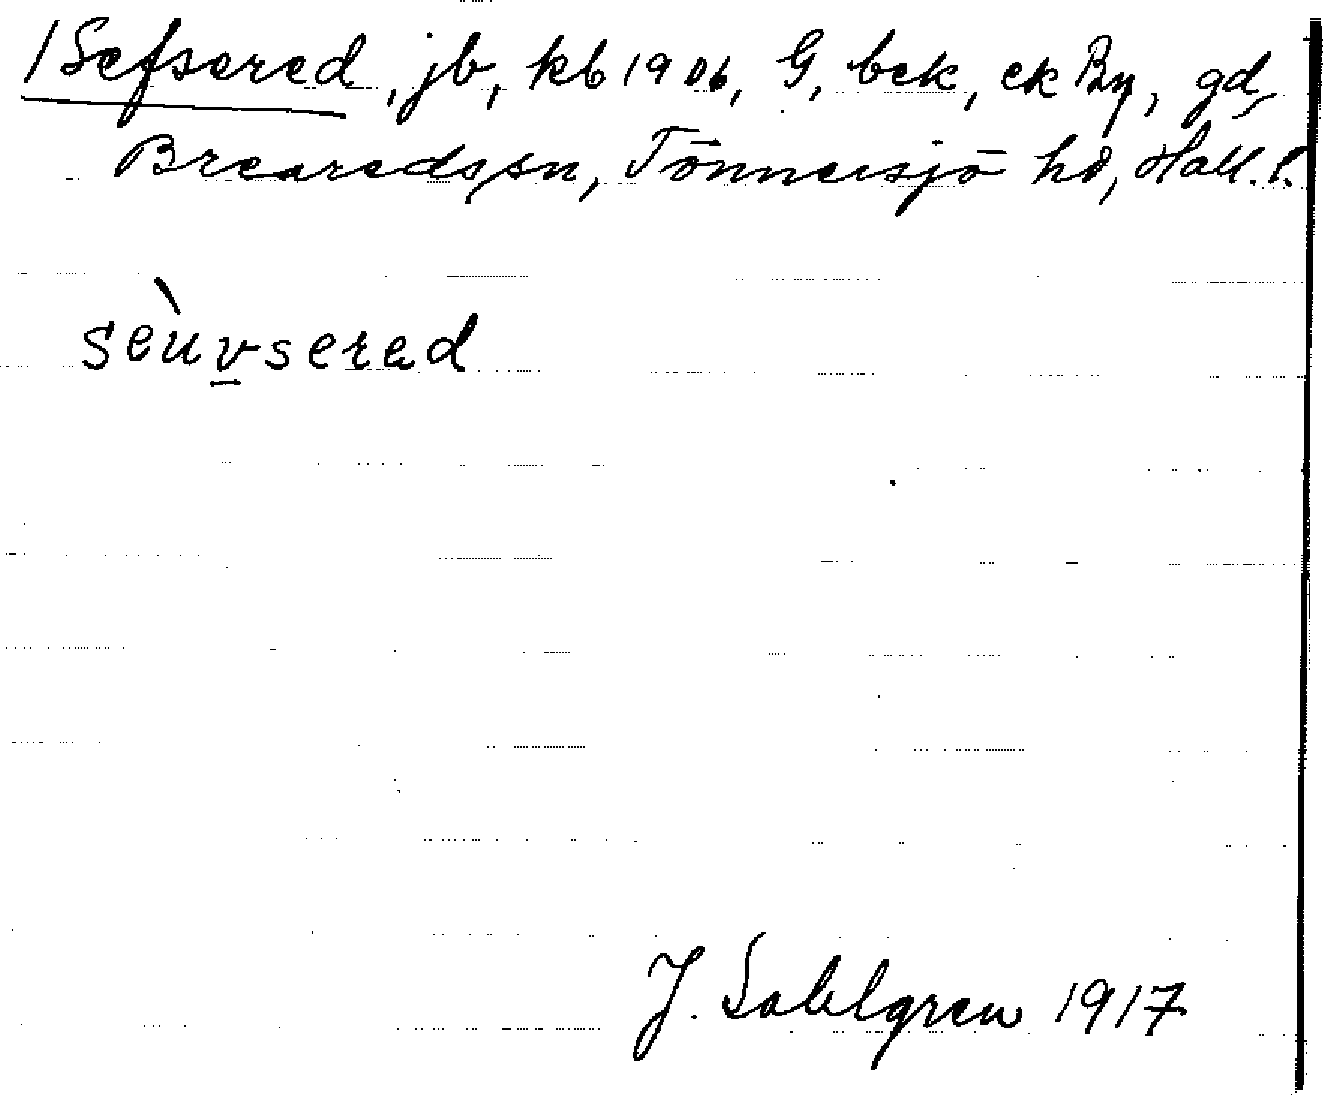 /Sefsered, jb, kb 1906, G, bek, ek By, gd,
Breareds sn, Tönnersjö hd, Hall. l.
sèuvsered
J. Sahlgren 1917